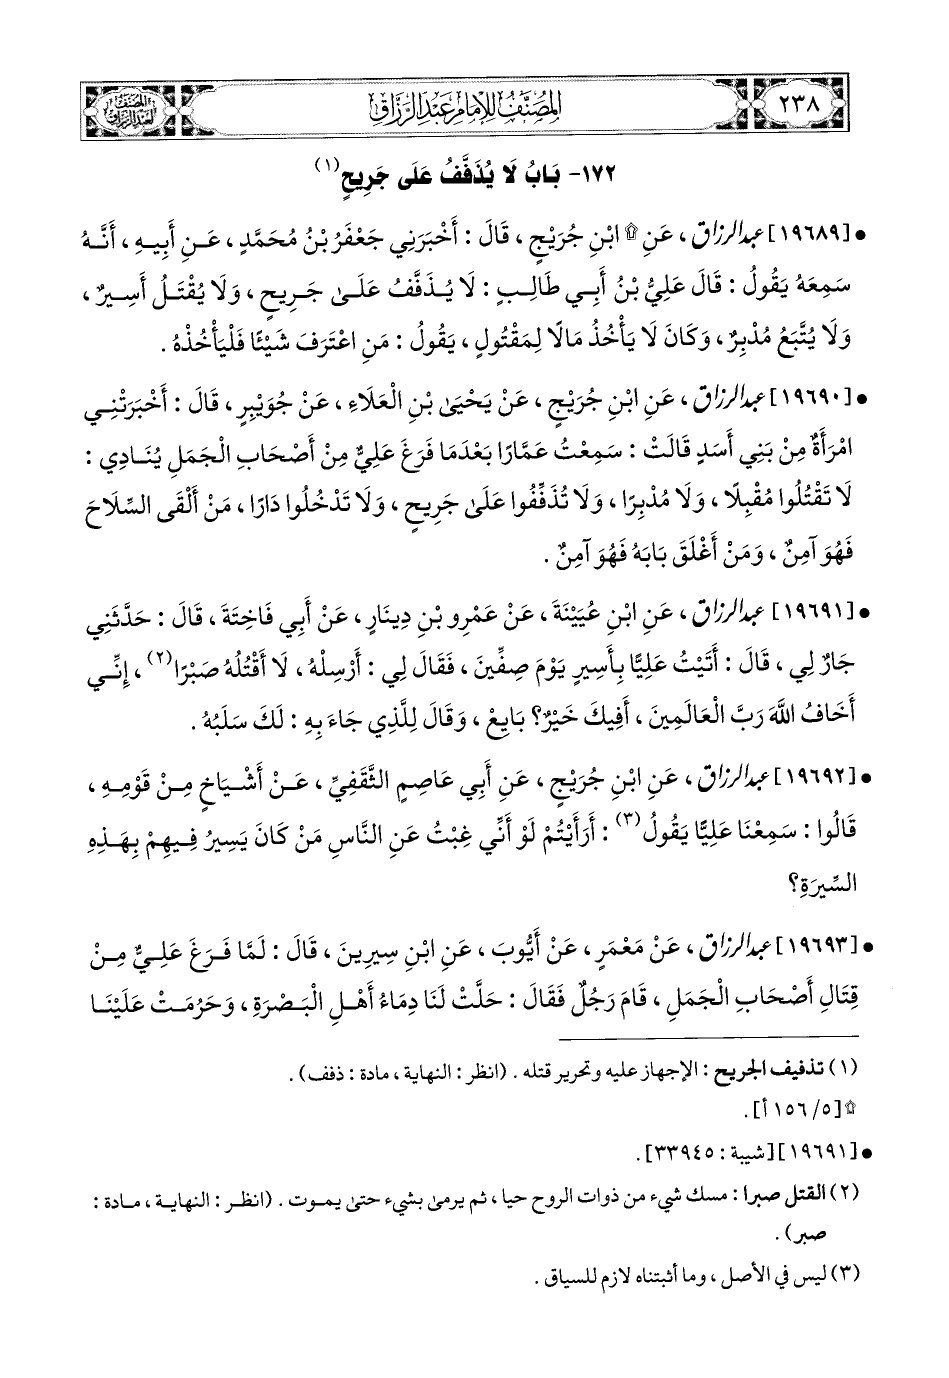 ٢٣٨
المصنف للإمام عبد الرزاق
المصنف
لعبد الرزاق
١٧٢- بَابُ لَا يُذَفَّفُ عَلَى جَرِيحٍ(١)
• [١٩٦٨٩] عبد الرزاق، عَنِ ۩ ابْنِ جُرَيْجٍ، قَالَ: أَخْبَرَنِي جَعْفَرُ بْنُ مُحَمَّدٍ، عَنِ أَبِيهِ، أَنَّهُ
سَمِعَهُ يَقُولُ: قَالَ عَلِيُّ بْنُ أَبِي طَالِبٍ: لَا يُذَفَّفُ عَلَى جَرِيحٍ، وَلَا يُقْتَلُ أَسِيرٌ،
وَلَا يُتَّبَعُ مُدْبِرٌ، وَكَانَ لَا يَأْخُذُ مَالًا لِمَقْتُولٍ، يَقُولُ: مَنِ اعْتَرَفَ شَيْئًا فَلْيَأْخُذْهُ.
• [١٩٦٩٠] عبد الرزاق، عَنِ ابْنِ جُرَيْجٍ، عَنْ يَحْيَى بْنِ الْعَلَاءِ، عَنْ جُوَيْبِرٍ، قَالَ: أَخْبَرَتْنِي
امْرَأَةٌ مِنْ بَنِي أَسَدٍ قَالَتْ: سَمِعْتُ عَمَّارًا بَعْدَمَا فَرَغَ عَلِيٌّ مِنْ أَصْحَابِ الْجَمَلِ يُنَادِي:
لَا تَقْتُلُوا مُقْبِلًا، وَلَا مُدْبِرًا، وَلَا تُذَفِّفُوا عَلَى جَرِيحٍ، وَلَا تَدْخُلُوا دَارًا، مَنْ أَلْقَى السِّلَاحَ
فَهُوَ آمِنٌ، وَمَنْ أَغْلَقَ بَابَهُ فَهُوَ آمِنٌ.
• [١٩٦٩١] عبد الرزاق، عَنِ ابْنِ عُيَيْنَةَ، عَنْ عَمْرِو بْنِ دِينَارٍ، عَنْ أَبِي فَاخِتَةَ، قَالَ: حَدَّثَنِي
جَارٌ لِي، قَالَ: أَتَيْتُ عَلِيًّا بِأَسِيرٍ يَوْمَ صِفِّينَ، فَقَالَ لِي: أَرْسِلْهُ، لَا أَقْتُلُهُ صَبْرًا(٢)، إِنِّي
أَخَافُ اللَّهَ رَبَّ الْعَالَمِينَ، أَفِيكَ خَيْرٌ؟ بَايِعْ، وَقَالَ لِلَّذِي جَاءَ بِهِ: لَكَ سَلَبُهُ.
• [١٩٦٩٢] عبد الرزاق، عَنِ ابْنِ جُرَيْجٍ، عَنِ أَبِي عَاصِمٍ الثَّقَفِيِّ، عَنْ أَشْيَاخٍ مِنْ قَوْمِهِ،
قَالُوا: سَمِعْنَا عَلِيًّا يَقُولُ(٣): أَرَأَيْتُمْ لَوْ أَنِّي غِبْتُ عَنِ النَّاسِ مَنْ كَانَ يَسِيرُ فِيهِمْ بِهَذِهِ
السِّيرَةِ؟
• [١٩٦٩٣] عبد الرزاق، عَنْ مَعْمَرٍ، عَنْ أَيُّوبَ، عَنِ ابْنِ سِيرِينَ، قَالَ: لَمَّا فَرَغَ عَلِيٌّ مِنْ
قِتَالِ أَصْحَابِ الْجَمَلِ، قَامَ رَجُلٌ فَقَالَ: حَلَّتْ لَنَا دِمَاءُ أَهْلِ الْبَصْرَةِ، وَحَرُمَتْ عَلَيْنَا
(١) تذفيف الجريح: الإجهاز عليه وتحرير قتله. (انظر: النهاية، مادة: ذفف).
۩ [٥/ ١٥٦ أ].
• [١٩٦٩١] [شيبة: ٣٣٩٤٥].
(٢) القتل صبرا: مسك شيء من ذوات الروح حيا، ثم يرمى بشيء حتى يموت. (انظر: النهاية، مادة:
صبر).
(٣) ليس في الأصل، وما أثبتناه لازم للسياق.